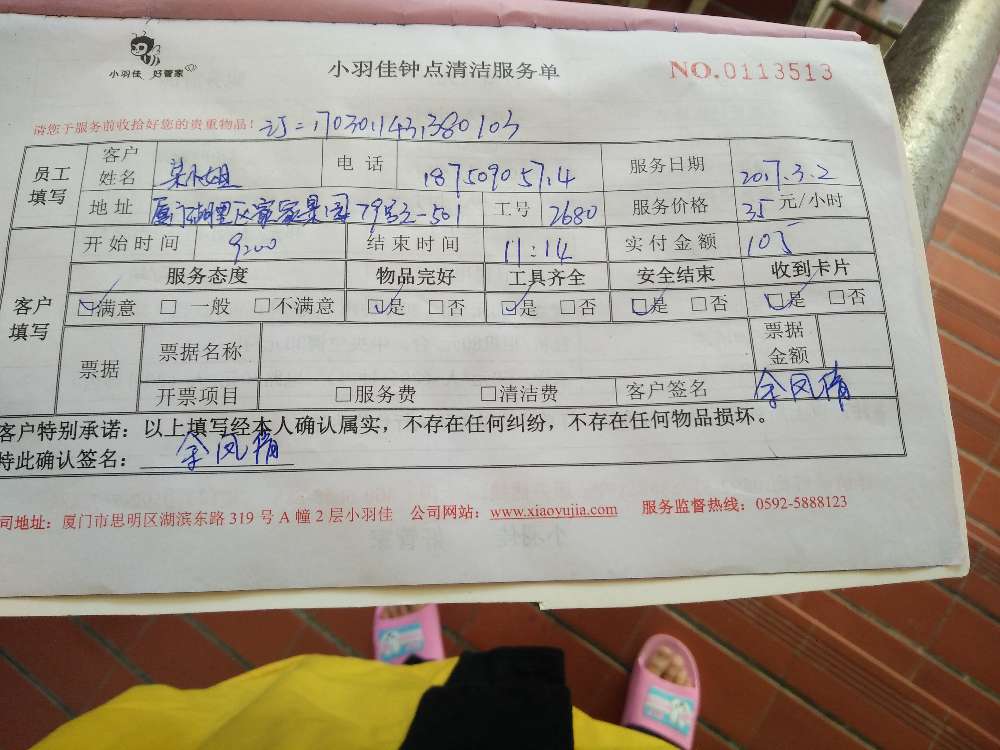 小羽佳 好管家
小羽佳钟点清洁服务单
NO.0113513
请您于服务前收拾好您的贵重物品！
员工填写 客户姓名 小姐 电话 服务日期 2017.3.2
地址 厦门湖里区家家景园79号之-501 工号 2680 服务价格 35 元/小时
客户填写 开始时间 9:00 结束时间 11:14 实付金额 105
服务态度 物品完好 工具齐全 安全结束 收到卡片
☑满意 □一般 □不满意 ☑是 □否 ☑是 □否 ☑是 □否 ☑是 □否
票据 票据名称 票据金额
开票项目 □服务费 □清洁费 客户签名 余凤倩
客户特别承诺：以上填写经本人确认属实，不存在任何纠纷，不存在任何物品损坏。
特此确认签名：余凤倩
司地址：厦门市思明区湖滨东路 319 号 A 幢 2 层小羽佳 公司网站：www.xiaoyujia.com 服务监督热线：0592-5888123